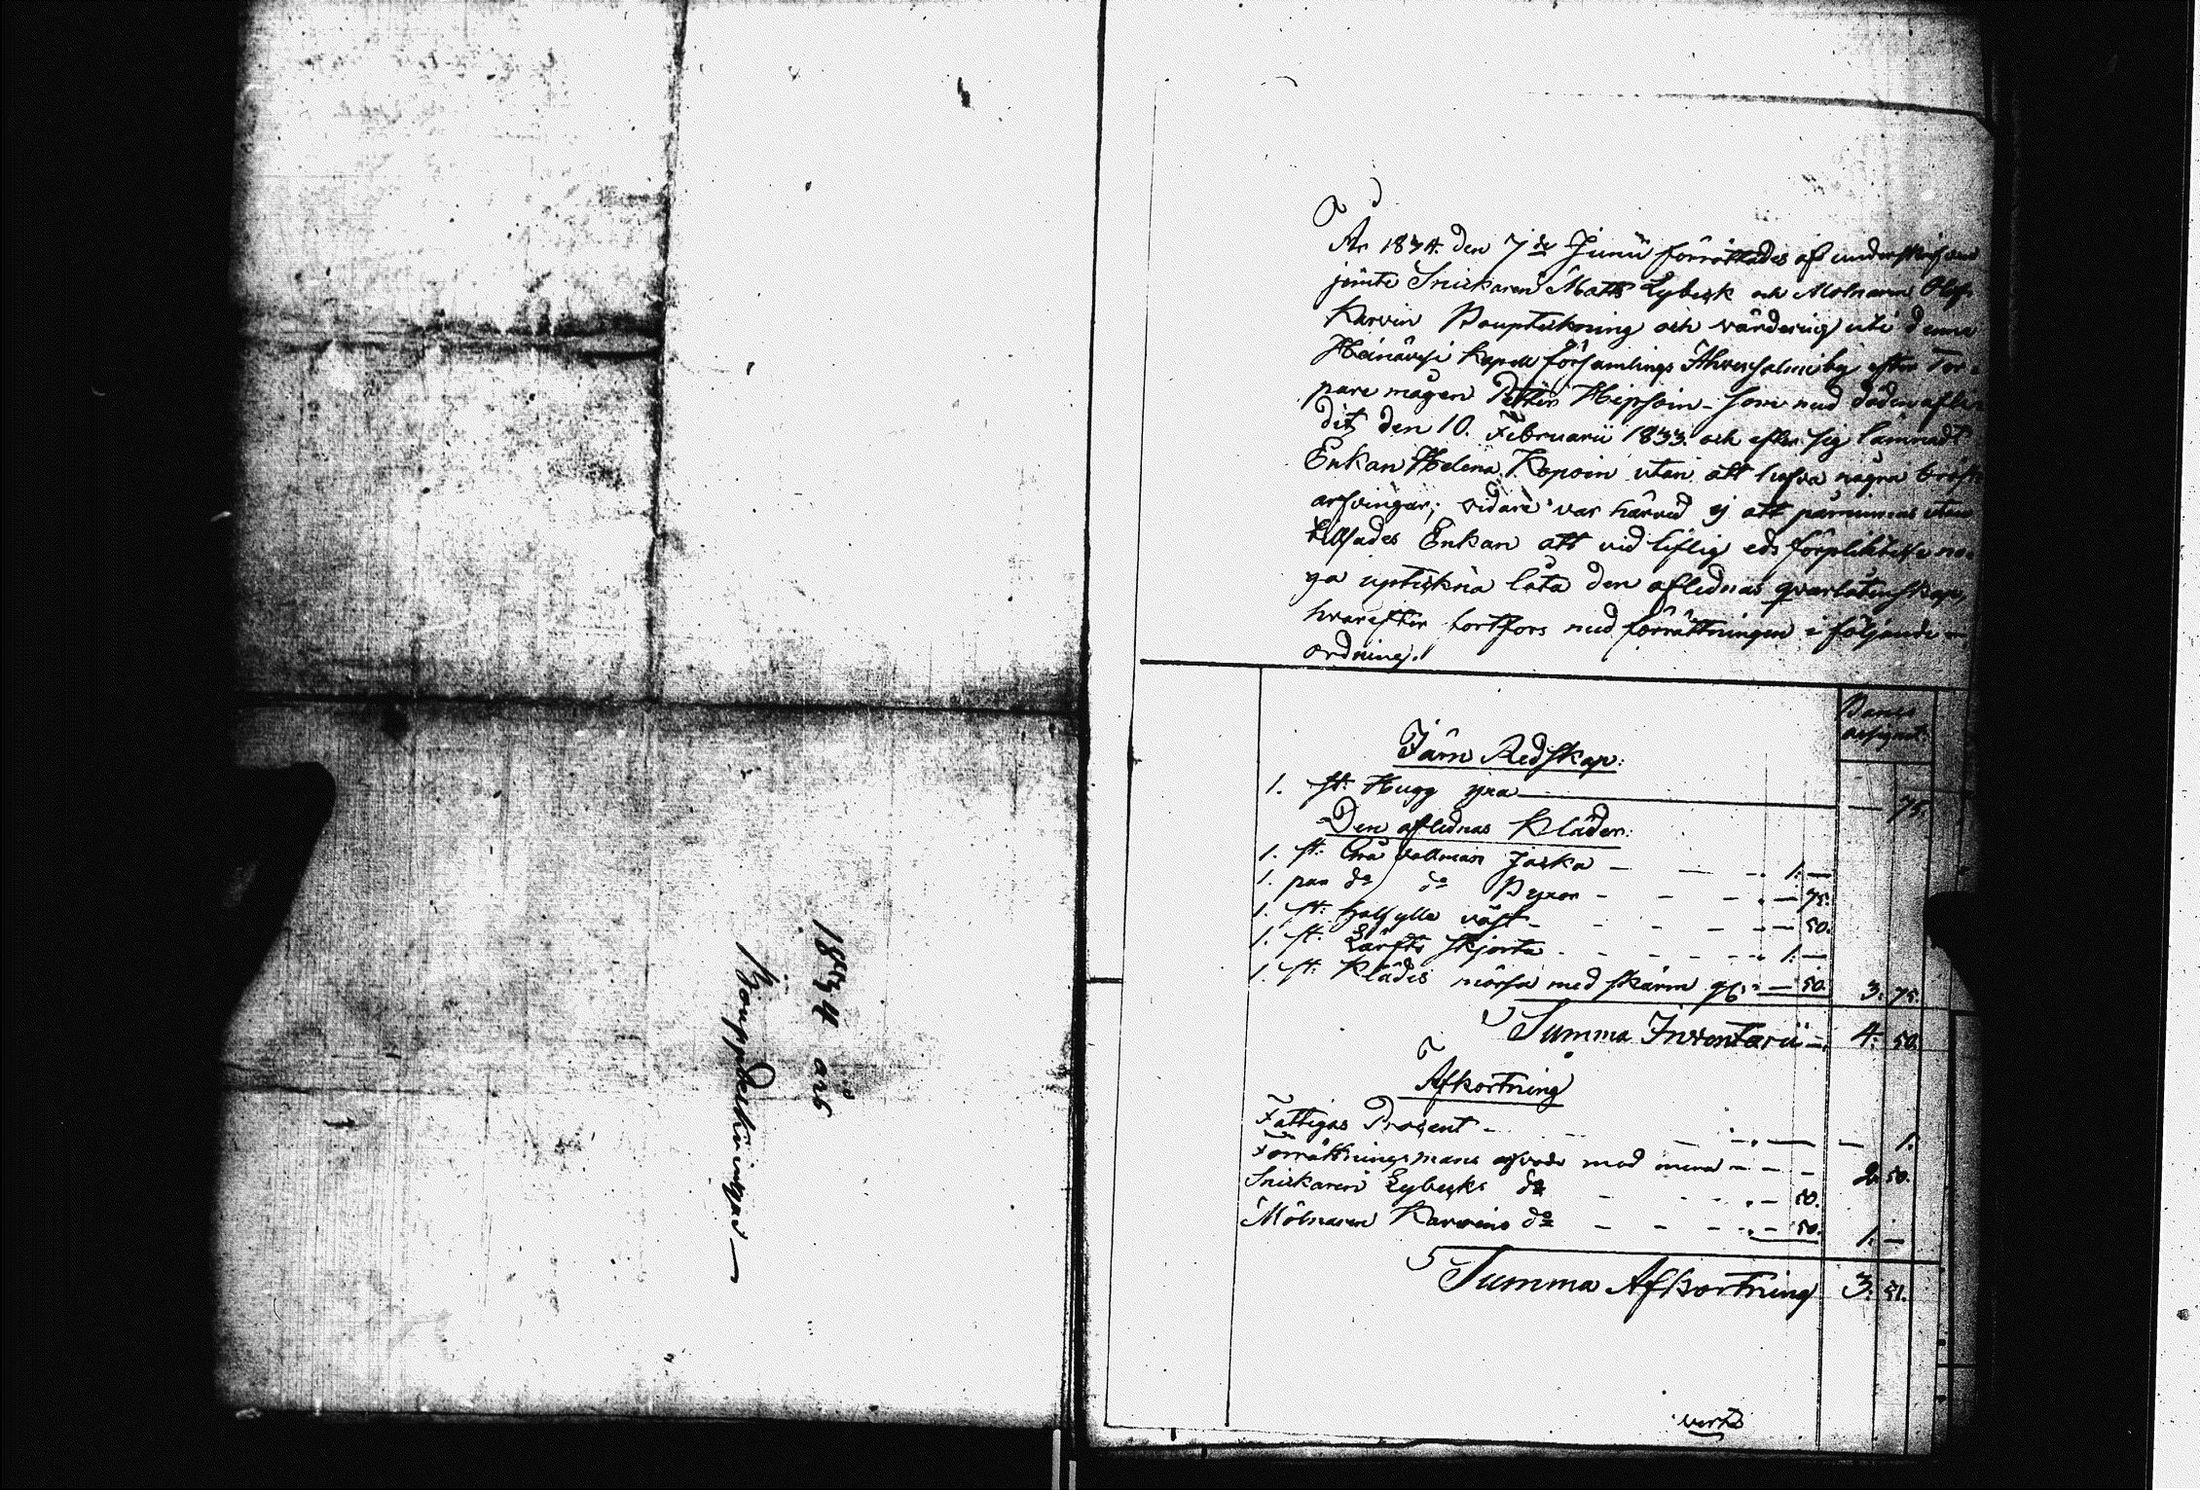 1834 års
Bouppteckningar
År 1834 den 7de Junii förrättades af underskrifven
jemte Snickaren Matts Lybeck och Molnaren Olof
Karvin Bouptekning och värdering uti denna
Heinävesi Kapell församlings Ihvensalmi by efter Tor-
pare mågen Petter Hipsoin som med döden aflí-
dit den 10. Februarii 1833. och efter sig lämnadt
Enkan Helena Kopoin utan att hafva några bröst
arfvingar; vidare var härvid ej att påminnas utan
tillsades Enkan att vid liflig eds förpliktelse no-
ga uptekna låta den aflidnas qvarlåtenskap,
hvarefter fortfors med förrättningen i följande
ordning.
Banco assignat.
Järn Redskap:
1. st: Hugg yxa — 75.
Den aflednas Kläder:
1. st: Grå vallmans Jacka - - - 1. —
1. par do do Byxor - - - — 75.
1. st: halfylle väst - - - — 50.
1. st: Lärfts skjorta - - - 1. —
1. st: Klädes mössa med skärm — 50. 3. 75.
Summa Inventarii — 4. 50.
Afkortning
Fattigas Procent - — 1.
Förrättningsmans arfvode med mera - - - 2. 50.
Snickaren Lybecks do - - - 50.
Mölnaren Karvins do - - - 50. 1. —
Summa Afkortning 3. 51.
verte